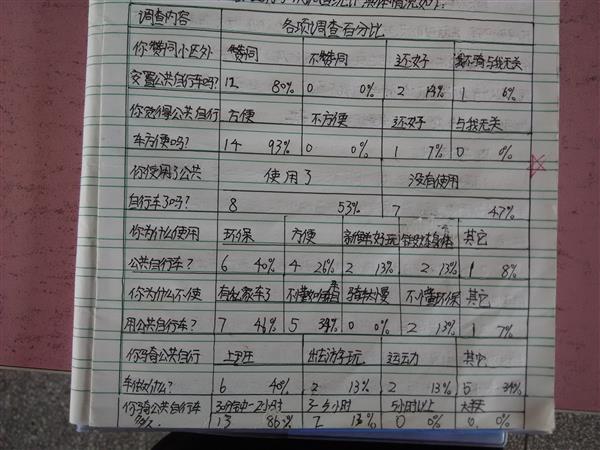 调查内容 各项调查百分比
你赞同小区外 赞同 不赞同 还好 与我无关
安置公共自行车吗? 12 80% 0 0% 2 14% 1 6%
你觉得公共自行 方便 不方便 还好 与我无关
车方便吗? 14 93% 0 0% 1 7% 0 0%
你使用了公共 使用了 没有使用
自行车了吗? 8 53% 7 47%
你为什么使用 环保 方便 新鲜好玩 锻炼身体 其它
公共自行车? 6 40% 4 26% 2 13% 2 13% 1 8%
你为什么不使 有私家车了 不懂如何借 骑太慢 不懂环保 其它
用公共自行车? 7 46% 5 34% 0 0% 2 13% 1 7%
你骑公共自行 上班 出去游玩 运动 其它
车做什么? 6 40% 2 13% 2 13% 5 34%
你骑公共自行车 30分钟-2小时 3-4小时 5小时以上
多久 13 86% 2 13% 0 0% 0 0%